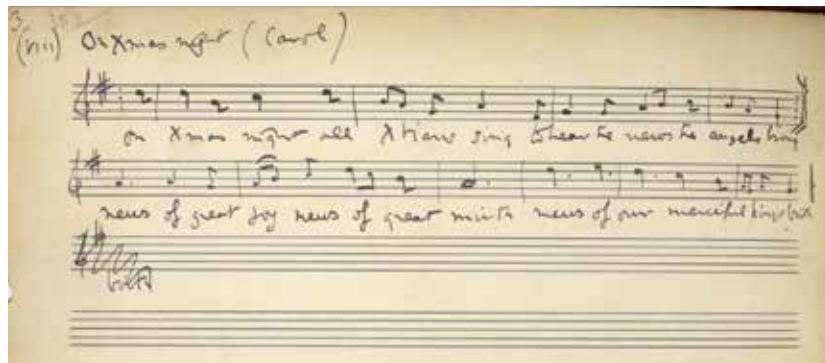 3
(viii) On Xmas night (Carol)
on Xmas night all Xtians sing to hear the news the angels bring
news of great joy news of great mirth news of our merciful king's birth